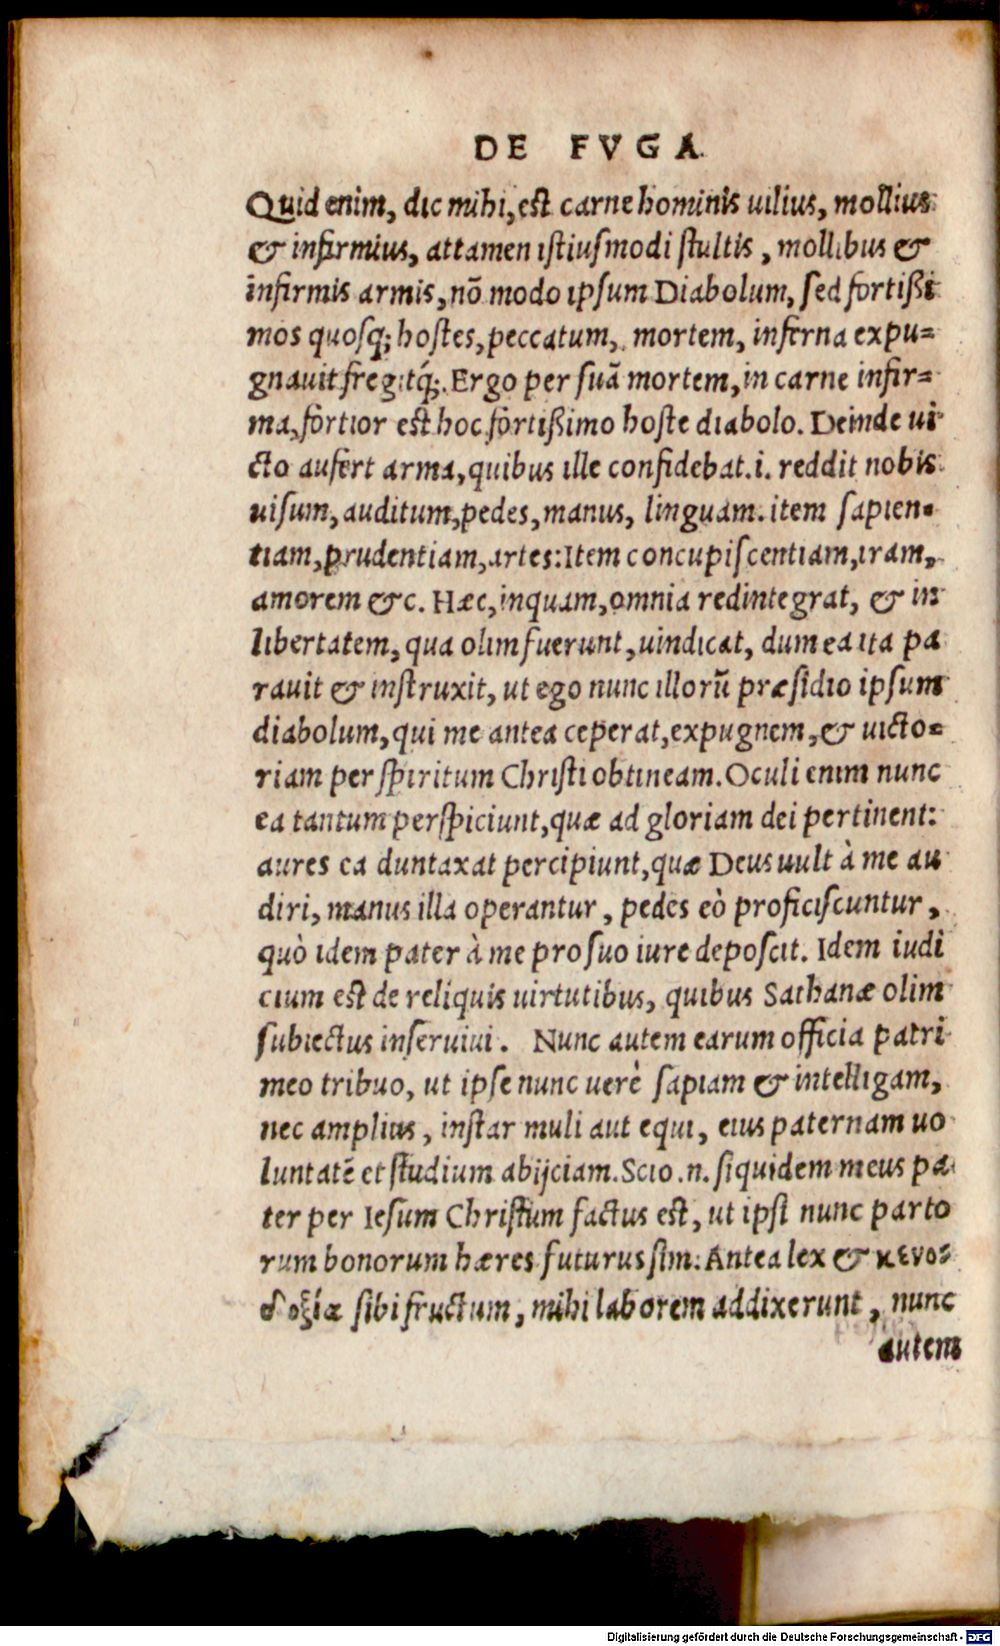 DE FVGA.
Quid enim, dic mihi, est carne hominis uilius, mollius
& infirmius, attamen istiusmodi stultis, mollibus &
infirmis armis, nō modo ipsum Diabolum, sed fortißi
mos quosq; hostes, peccatum, mortem, inferna expu=
gnauit fregitq́;. Ergo per suā mortem, in carne infir=
ma, fortior est hoc fortißimo hoste diabolo. Deinde ui
cto aufert arma, quibus ille confidebat.i. reddit nobis
uisum, auditum, pedes, manus, linguam. item sapien=
tiam, prudentiam, artes: Item concupiscentiam, iram,
amorem &c. Hæc, inquam, omnia redintegrat, & in
libertatem, qua olim fuerunt, uindicat, dum ea ita pa
rauit & instruxit, ut ego nunc illorū præsidio ipsum
diabolum, qui me antea ceperat, expugnem, & uicto=
riam per spiritum Christi obtineam. Oculi enim nunc
ea tantum perspiciunt, quæ ad gloriam dei pertinent:
aures ea duntaxat percipiunt, quæ Deus uult à me au
diri, manus illa operantur, pedes eò proficiscuntur,
quò idem pater à me pro suo iure deposcit. Idem iudi
cium est de reliquis uirtutibus, quibus Sathanæ olim
subiectus inseruiui. Nunc autem earum officia patri
meo tribuo, ut ipse nunc uerè sapiam & intelligam,
nec amplius, instar muli aut equi, eius paternam uo
luntatē et studium abijciam. Scio .n. siquidem meus pa
ter per Iesum Christum factus est, ut ipsi nunc parto
rum bonorum hæres futurus sim: Antea lex & κενο=
δοξίæ sibi fructum, mihi laborem addixerunt, nunc
autem
Digitalisierung gefördert durch die Deutsche Forschungsgemeinschaft - DFG